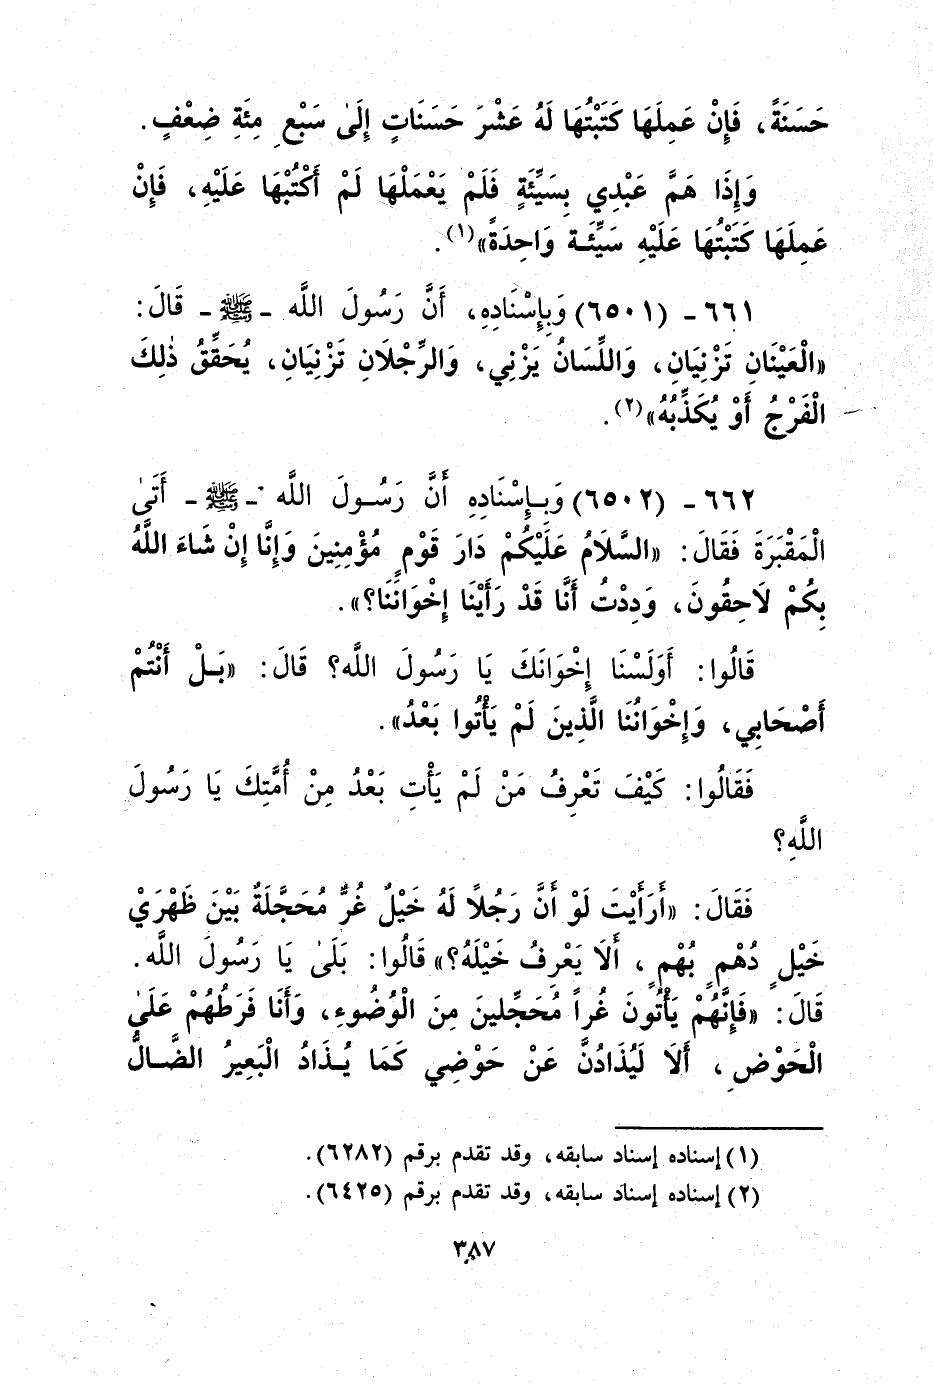 حَسَنَةً، فَإِنْ عَمِلَهَا كَتَبْتُهَا لَهُ عَشْرَ حَسَنَاتٍ إِلَىٰ سَبْعِ مِئَةِ ضِعْفٍ.
وَإِذَا هَمَّ عَبْدِي بِسَيِّئَةٍ فَلَمْ يَعْمَلْهَا لَمْ أَكْتُبْهَا عَلَيْهِ، فَإِنْ
عَمِلَهَا كَتَبْتُهَا عَلَيْهِ سَيِّئَـة وَاحِدَةً»(١).
٦٦١ - (٦٥٠١) وَبِإِسْنَادِهِ، أَنَّ رَسُولَ اللَّه - ﷺ - قَالَ:
«الْعَيْنَانِ تَزْنِيَانِ، وَاللِّسَانُ يَزْنِي، وَالرِّجْلَانِ تَزْنِيَانِ، يُحَقِّقُ ذٰلِكَ
الْفَرْجُ أَوْ يُكَذِّبُهُ»(٢).
٦٦٢ - (٦٥٠٢) وَبِـإِسْنَادِهِ أَنَّ رَسُـولَ اللَّه - ﷺ - أَتَىٰ
الْمَقْبَرَةَ فَقَالَ: «السَّلَامُ عَلَيْكُمْ دَارَ قَوْمٍ مُؤْمِنِينَ وَإِنَّا إِنْ شَاءَ اللَّهُ
بِكُمْ لَاحِقُونَ، وَدِدْتُ أَنَّا قَدْ رَأَيْنَا إِخْوَانَنَا؟».
قَالُوا: أَوَلَسْنَا إِخْوَانَكَ يَا رَسُولَ اللَّه؟ قَالَ: «بَـلْ أَنْتُمْ
أَصْحَابِي، وَإِخْوَانُنَا الَّذِينَ لَمْ يَأْتُوا بَعْدُ».
فَقَالُوا: كَيْفَ تَعْرِفُ مَنْ لَمْ يَأْتِ بَعْدُ مِنْ أُمَّتِكَ يَا رَسُولَ
اللَّهِ؟
فَقَالَ: «أَرَأَيْتَ لَوْ أَنَّ رَجُلًا لَهُ خَيْلٌ غُرٌّ مُحَجَّلَةٌ بَيْنَ ظَهْرَيْ
خَيْلٍ دُهْمٍ بُهْمٍ، أَلَا يَعْرِفُ خَيْلَهُ؟» قَالُوا: بَلَىٰ يَا رَسُولَ اللَّه.
قَالَ: «فَإِنَّهُمْ يَأْتُونَ غُراً مُحَجَّلِينَ مِنَ الْوُضُوءِ، وَأَنَا فَرَطُهُمْ عَلَىٰ
الْحَوْضِ، أَلَا لَيُذَادُنَّ عَنْ حَوْضِي كَمَا يُـذَادُ الْبَعِيرُ الضَّـالُّ
(١) إسناده إسناد سابقه، وقد تقدم برقم (٦٢٨٢).
(٢) إسناده إسناد سابقه، وقد تقدم برقم (٦٤٢٥).
٣٨٧